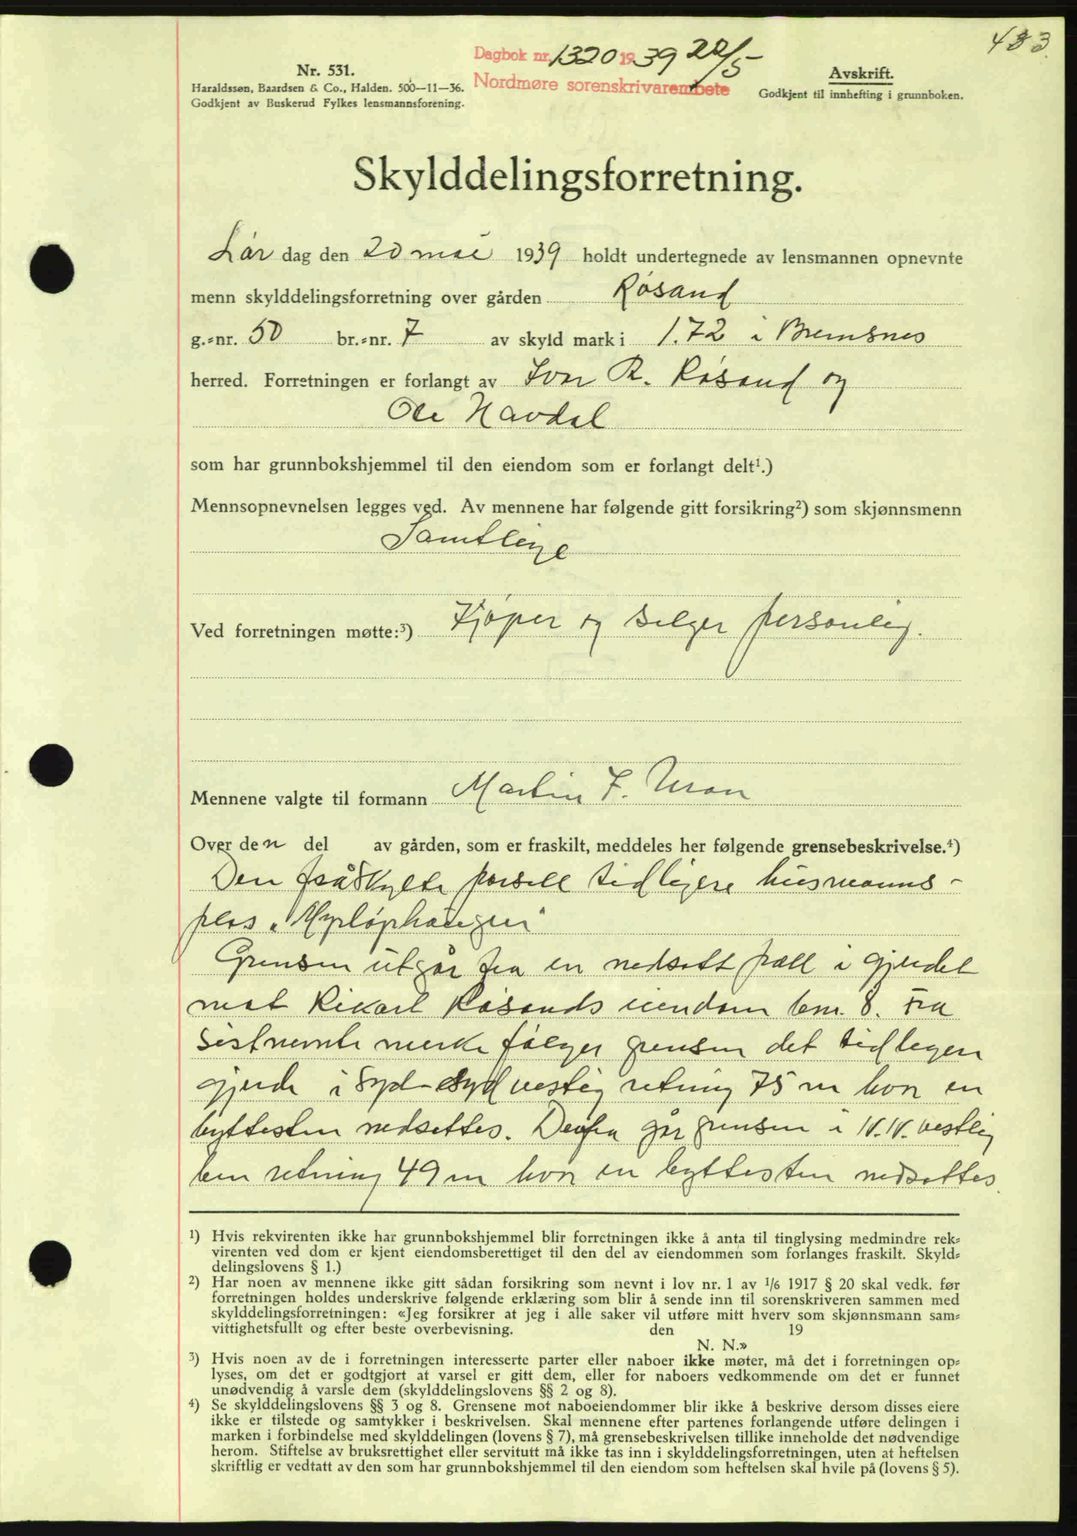 483
Dagbok nr. 1320 1939 22/5
Nordmøre sorenskrivarembete
Nr. 531.
Haraldssøn, Baardsen & Co., Halden. 500—11—36.
Godkjent av Buskerud Fylkes lensmannsforening.
Avskrift.
Godkjent til innhefting i grunnboken.
Skylddelingsforretning.
Lør dag den 20 mai 1939 holdt undertegnede av lensmannen opnevnte
menn skylddelingsforretning over gården Røsand
g.-nr. 50 br.-nr. 7 av skyld mark i 1.72 i Bremsnes
herred. Forretningen er forlangt av Ivar R. Røsand og
Ole Havdal
som har grunnbokshjemmel til den eiendom som er forlangt delt¹.)
Mennsopnevnelsen legges ved. Av mennene har følgende gitt forsikring²) som skjønnsmenn
Samtlige
Ved forretningen møtte:³) Kjøper og selger personlig.
Mennene valgte til formann Martin F.
Over den del av gården, som er fraskilt, meddeles her følgende grensebeskrivelse.⁴)
Den fråskylte parsell tidligere husmanns-
plass "Myrløphaugen"
Grensen utgår fra en nedsatt pæll i gjerdet
mot Rikard Røsands eiendom bnr. 8. Fra
sistnevnte merke følger grensen det tidligere
gjerde i syd-sydvestlig retning 75 m hvor en
byttesten nedsettes. Derfra går grensen i N.N. vestlig
retning 49 m hvor en byttesten nedsettes
¹) Hvis rekvirenten ikke har grunnbokshjemmel blir forretningen ikke å anta til tinglysing medmindre rek-
virenten ved dom er kjent eiendomsberettiget til den del av eiendommen som forlanges fraskilt. Skyld-
delingslovens § 1.)
²) Har noen av mennene ikke gitt sådan forsikring som nevnt i lov nr. 1 av 1/6 1917 § 20 skal vedk. før
forretningen holdes underskrive følgende erklæring som blir å sende inn til sorenskriveren sammen med
skylddelingsforretningen: «Jeg forsikrer at jeg i alle saker vil utføre mitt hverv som skjønnsmann sam-
vittighetsfullt og efter beste overbevisning. den 19
N. N.»
³) Hvis noen av de i forretningen interesserte parter eller naboer ikke møter, må det i forretningen op-
lyses, om det er godtgjort at varsel er gitt dem, eller for naboers vedkommende om det er funnet
unødvendig å varsle dem (skylddelingslovens §§ 2 og 8).
⁴) Se skylddelingslovens §§ 3 og 8. Grensene mot naboeiendommer blir ikke å beskrive dersom disses eiere
ikke er tilstede og samtykker i beskrivelsen. Skal mennene efter partenes forlangende utføre delingen i
marken i forbindelse med skylddelingen (lovens § 7), må grensebeskrivelsen tillike inneholde det nødvendige
herom. Stiftelse av bruksrettighet eller servitutt må ikke tas inn i skylddelingsforretningen, uten at heftelsen
skriftlig er vedtatt av den som har grunnbokshjemmel til den eiendom som heftelsen skal hvile på (lovens § 5).